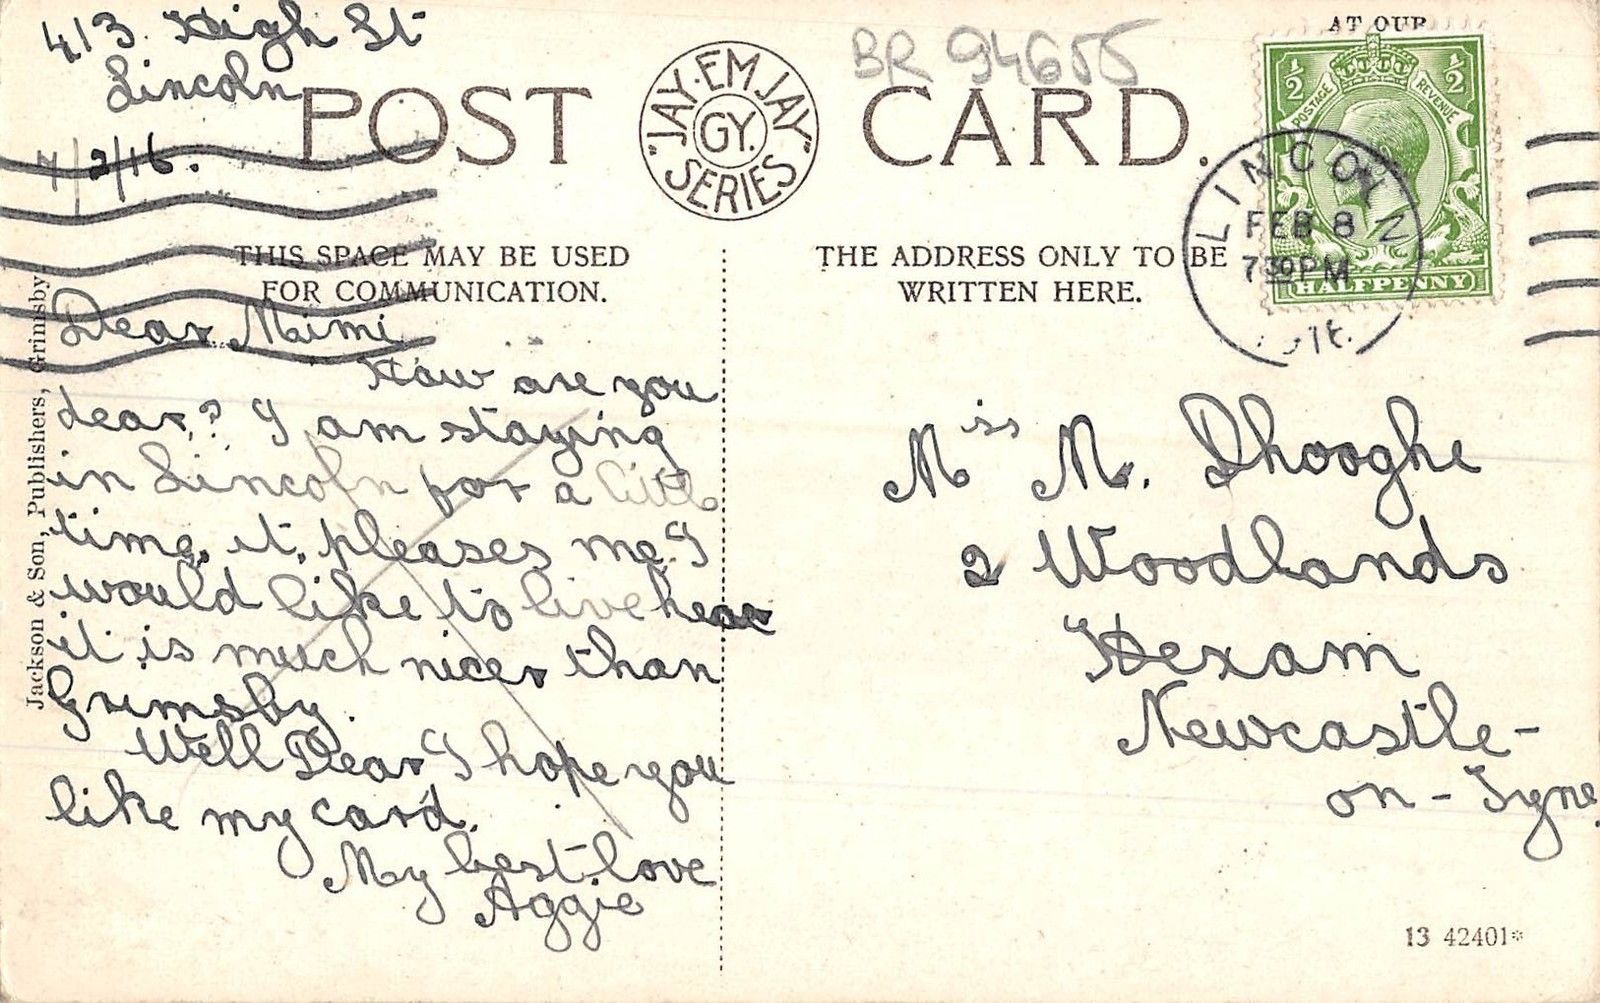 413. High St
Lincoln
7/2/16.
POST CARD.
"JAY·EM JAY"
GY.
SERIES
BR 94655
AT OUR
1/2 1/2
POSTAGE REVENUE
HALFPENNY
LINCOLN
FEB 8
7 30 PM
THIS SPACE MAY BE USED
FOR COMMUNICATION.
THE ADDRESS ONLY TO BE
WRITTEN HERE.
Jackson & Son, Publishers, Grimsby.
Dear Mimi
How are you
dear? I am staying
in Lincoln for a little
time, it, pleases me. I
would like to live hear
it is much nicer than
Grimsby.
Well Dear I hope you
like my card.
My best love
Aggie
Miss M. Dhooghe
2 Woodlands
Hexam
Newcastle-
on-Tyne.
13 42401*